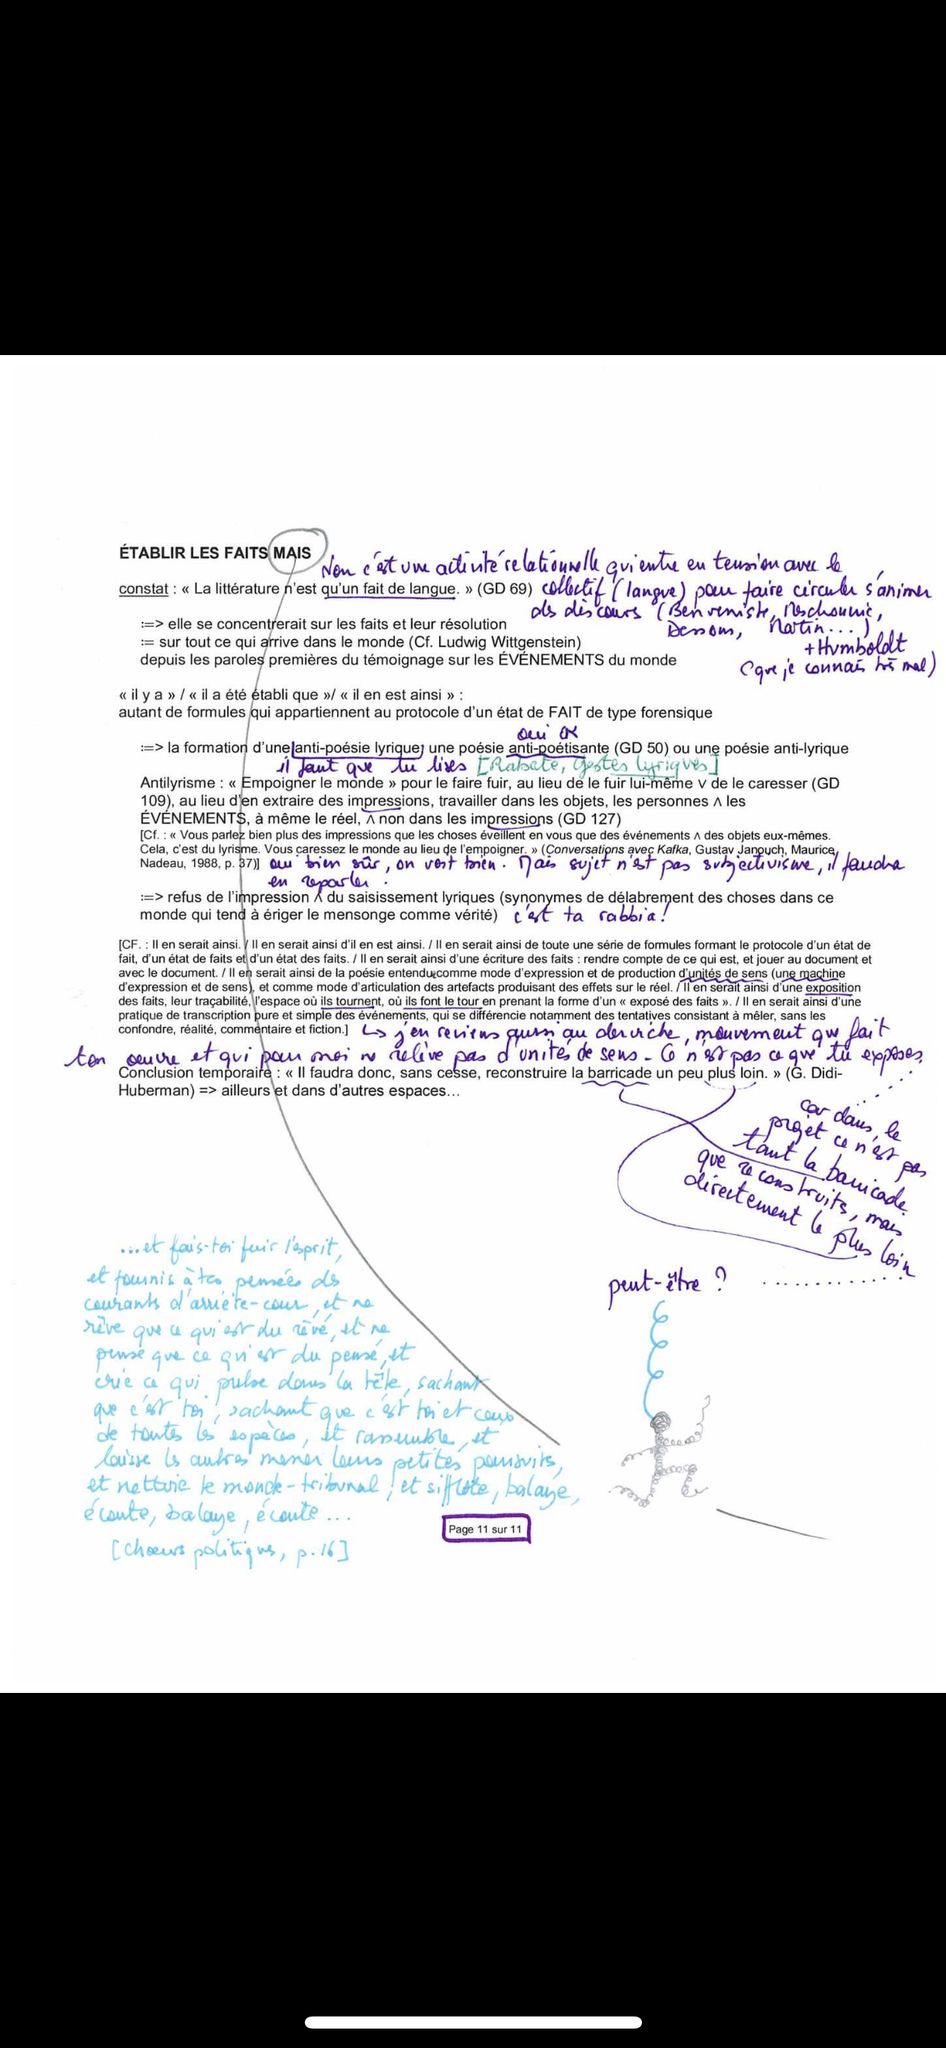 ÉTABLIR LES FAITS MAIS
Non c'est une activité relationnelle qui entre en tension avec le
constat : « La littérature n'est qu'un fait de langue. » (GD 69) collectif (langue) pour faire circuler s'animer
des discours (Benveniste, Meschonnic,
:=> elle se concentrerait sur les faits et leur résolution
Dessons, Martin...)
:= sur tout ce qui arrive dans le monde (Cf. Ludwig Wittgenstein)
+ Humboldt
depuis les paroles premières du témoignage sur les ÉVÉNEMENTS du monde
(que je connais très mal)
« il y a » / « il a été établi que »/ « il en est ainsi » :
autant de formules qui appartiennent au protocole d'un état de FAIT de type forensique
oui ok
:=> la formation d'une anti-poésie lyrique, une poésie anti-poétisante (GD 50) ou une poésie anti-lyrique
il faut que tu lises [Rabaté, Gestes lyriques]
Antilyrisme : « Empoigner le monde » pour le faire fuir, au lieu de le fuir lui-même v de le caresser (GD
109), au lieu d'en extraire des impressions, travailler dans les objets, les personnes ʌ les
ÉVÉNEMENTS, à même le réel, ʌ non dans les impressions (GD 127)
[Cf. : « Vous parlez bien plus des impressions que les choses éveillent en vous que des événements ʌ des objets eux-mêmes.
Cela, c'est du lyrisme. Vous caressez le monde au lieu de l'empoigner. » (Conversations avec Kafka, Gustav Janouch, Maurice
Nadeau, 1988, p. 37)] oui bien sûr, on voit bien. Mais sujet n'est pas subjectivisme, il faudra
en reparler.
:=> refus de l'impression ʌ du saisissement lyriques (synonymes de délabrement des choses dans ce
monde qui tend à ériger le mensonge comme vérité) c'est ta rabbia !
[CF. : Il en serait ainsi. / Il en serait ainsi d'il en est ainsi. / Il en serait ainsi de toute une série de formules formant le protocole d'un état de
fait, d'un état de faits et d'un état des faits. / Il en serait ainsi d'une écriture des faits : rendre compte de ce qui est, et jouer au document et
avec le document. / Il en serait ainsi de la poésie entendue comme mode d'expression et de production d'unités de sens (une machine
d'expression et de sens), et comme mode d'articulation des artefacts produisant des effets sur le réel. / Il en serait ainsi d'une exposition
des faits, leur traçabilité, l'espace où ils tournent, où ils font le tour en prenant la forme d'un « exposé des faits ». / Il en serait ainsi d'une
pratique de transcription pure et simple des événements, qui se différencie notamment des tentatives consistant à mêler, sans les
confondre, réalité, commentaire et fiction.] ↳ j'en reviens aussi au derviche, mouvement que fait
ton œuvre et qui pour moi ne relève pas d'unités de sens - Ce n'est pas ce que tu exposes.
Conclusion temporaire : « Il faudra donc, sans cesse, reconstruire la barricade un peu plus loin. » (G. Didi-
Huberman) => ailleurs et dans d'autres espaces…
car dans le
projet ce n'est pas
tant la barricade
que reconstruits, mais
directement le plus loin
peut-être ? ............
...et fais-toi fuir l'esprit,
et fournis à tes pensées des
courants d'arrière-cour, et ne
rêve que ce qui est du rêvé, et ne
pense que ce qu'est du pensé, et
crie ce qui pulse dans la tête, sachant
que c'est toi, sachant que c'est toi et ceux
de toutes les espèces, et rassemble, et
laisse les autres mener leurs petites poursuites,
et nettoie le monde-tribunal ; et sifflote, balaye,
écoute, balaye, écoute ...
[Chœurs politiques, p. 16]
Page 11 sur 11